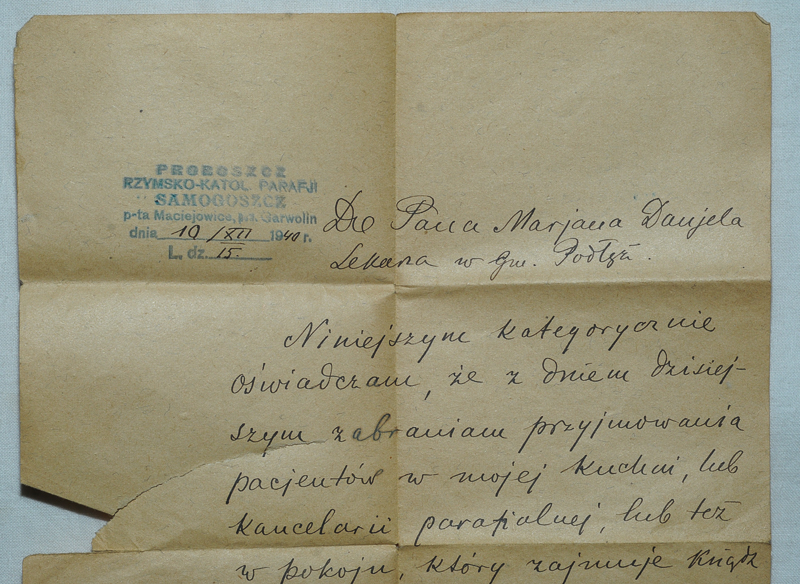 PROBOSZCZ
RZYMSKO-KATOL. PARAFJI
SAMOGOSZCZ
p-ta Maciejowice, pow. Garwolin
dnia 10/XII 1940 r.
L. dz. 15.
Do Pana Marjana Danjela
Lekarza w Gm. Podłęż.
Niniejszym kategorycznie
oświadczam, że z dniem dzisiej-
szym zabraniam przyjmowania
pacjentów w mojej kuchni, lub
kancelarii parafialnej, lub też
w pokoju, który zajmuje Ksiądz